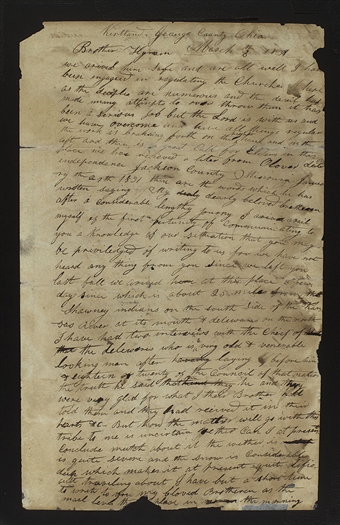 Kirtland Geauga County Ohio
Brother Hyrum March 3d 1831
we arived here safe and are all well I have
been engaged in regulating the Churches here
as the deciples are numerous and the devil had
made many attempts to over throw them it has
been a serious job but the Lord is with us and
we have overcome and have all things regular
the work is brakeing forth on the right hand and on the
left and there is a great Call for Elders in this
place we have recieved a leter from Oliver dated
independence Jackson County Missouri
the 29th 1831 these are the words which he has
written saying My dearly beloved brotheren
after a considerable lengthy journy I avail
myself of the first opertunity of communicating to
you a knowledge of our situation that you may
be priviledged of writing to us for we have not
heard any thing from you since we left you
last fall we arived at this place a few
days since which is about 25 miles from the
Shawney indians on the south side of the Kan
sas River at its mouth & delewares on the north
I have had two interviews with the Chief of
the delewares who is a very old & venerable
looking man after laying before him
& eighteen or twenty of the Council of that nation
the truth he said he and they
were very glad for what I their Brother had
told them and they had recived it in their
harts &c But how the matter will go with this
tribe to me is uncertain nether Can I at present
Conclude mutch about it the wether is
quite severe and the snow is Considerable
deep which makes it at present quite dificu
lt traveling about I have but a short time
to write to you my beloved Brotheren as the
mail leves this place in the morning